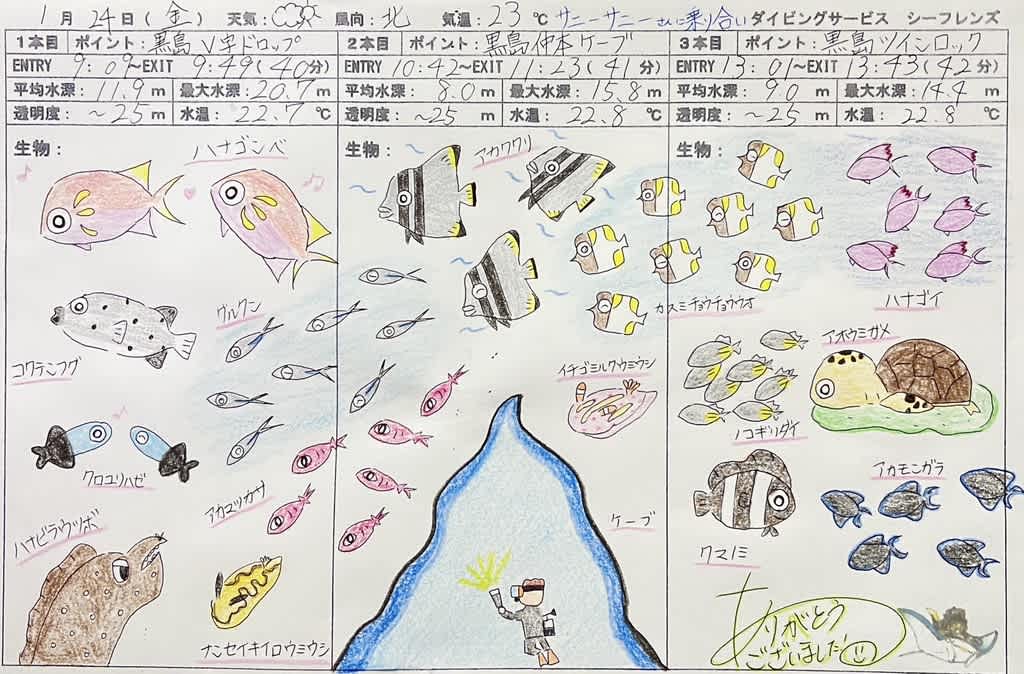 1月24日(金) 天気: 風向:北 気温:23℃ サニーサニーさんに乗り合い ダイビングサービス シーフレンズ
1本目 ポイント:黒島V字ドロップ
ENTRY 9:09~EXIT 9:49(40分)
平均水深:11.9m 最大水深:20.7m
透明度:~25m 水温:22.7℃
生物:
ハナゴンベ
グルクン
コクテンフグ
クロユリハゼ
アカマツカサ
ハナビラウツボ
ナンセイキイロウミウシ
2本目 ポイント:黒島仲本ケーブ
ENTRY 10:42~EXIT 11:23(41分)
平均水深:8.0m 最大水深:15.8m
透明度:~25m 水温:22.8℃
生物:
カスミチョウチョウウオ
イチゴミルクウミウシ
ケーブ
3本目 ポイント:黒島ツインロック
ENTRY 13:01~EXIT 13:43(42分)
平均水深:9.0m 最大水深:14.4m
透明度:~25m 水温:22.8℃
生物:
ハナゴイ
アオウミガメ
ノコギリダイ
アカモンガラ
クマノミ
ありがとう
ございました